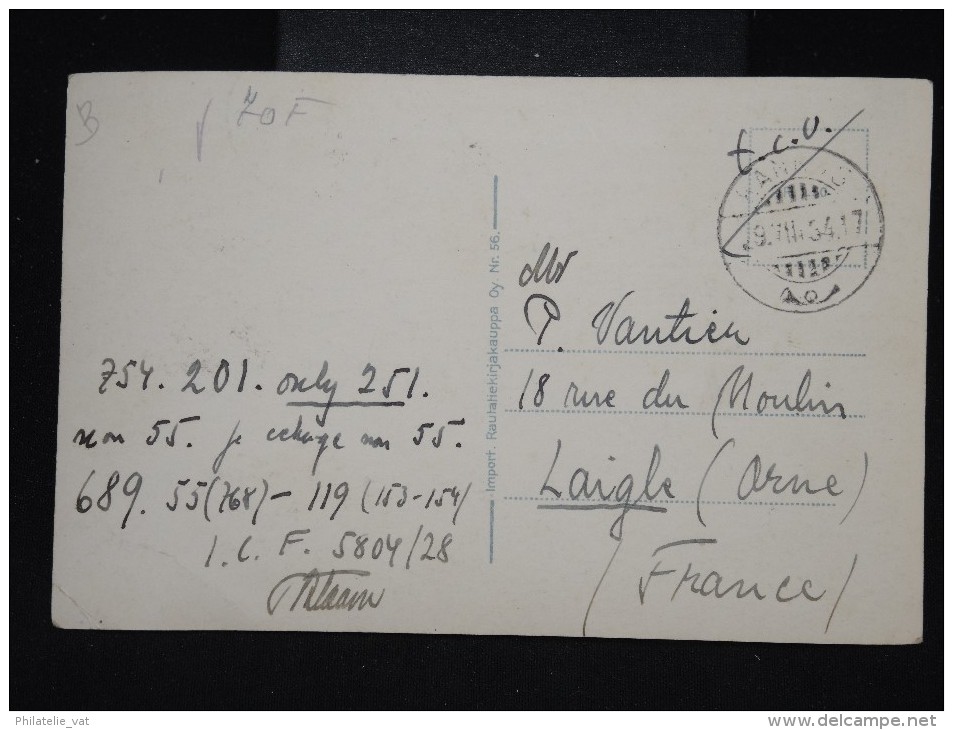 B
70F
t.c.v.
9.VII.34.17
Import. Rautatiekirjakauppa Oy. Nr. 56.
Mr
P. Vantieu
18 rue du Moulin
Laigle (Orne)
(France)
754. 201. only 251.
non 55. je echange non 55.
689. 55(768) - 119 (153-154)
I.C.F. 5804/28
Philatelie_vat
www.delcampe.net